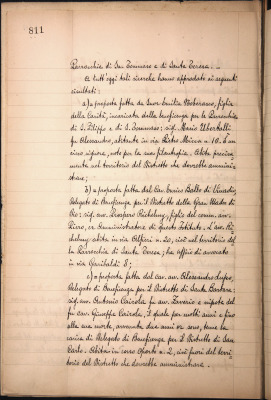 811
Parrocchia di San Tommaso e di Santa Teresa. -
A tutt'oggi tali ricerche hanno approdato ai seguenti
risultati:
a) a proposta fatta da Suor Emilia, figlia
della Carità, incaricata della beneficenza per le Parrocchie
di S. Filippo e di S. Tommaso: sig. Mario Ubertalli
fu Alessandro, abitante in via Pietro Micca n. 10. È un
vero signore, noto per la sua filantropia. Abita precisa-
mente nel territorio del Distretto che dovrebbe ammini-
strare;
b) a proposta fatta dal Cav. Enrico Balbo di Vinadio,
Delegato di Beneficenza per il Distretto della Gran Madre di
Dio: sig. avv. Prospero Richelmy, figlio del comm. avv.
Piero, ex Amministratore di questo Istituto. L'avv. Ri-
chelmy abita in via Alfieri n. 20, cioè nel territorio del-
la Parrocchia di Santa Teresa; ha uffizio di avvocato
in via Garibaldi 5;
c) a proposta fatta dal cav. avv. Alessandro,
Delegato di Beneficenza per il Distretto di Santa Barbara:
sig. avv. Antonio Cairola fu avv. e nipote del
fu cav. Giuseppe Cairola, il quale per molti anni e fino
alla sua morte, avvenuta due anni or sono, tenne la
carica di Delegato di Beneficenza per il Distretto di San
Carlo. Abita in corso Oporto n. 2, cioè fuori del terri-
torio del Distretto che dovrebbe amministrare.